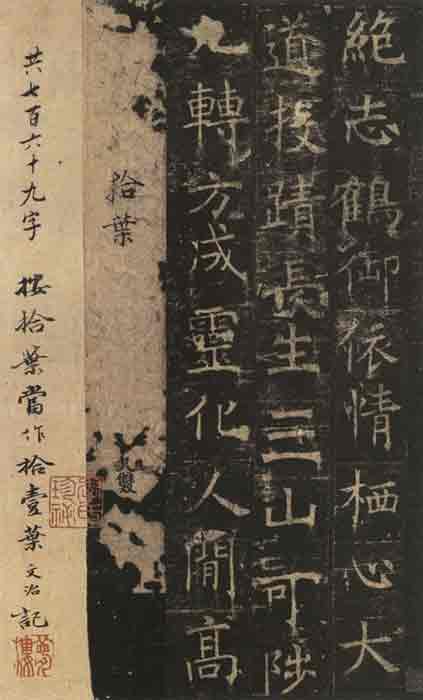 絶志鶴御依情栖心大
道投蹟長生三山可陟
九轉方成靈化人間高
拾葉
共七百六十九字 按拾葉當作拾壹葉 文治記
夢樓